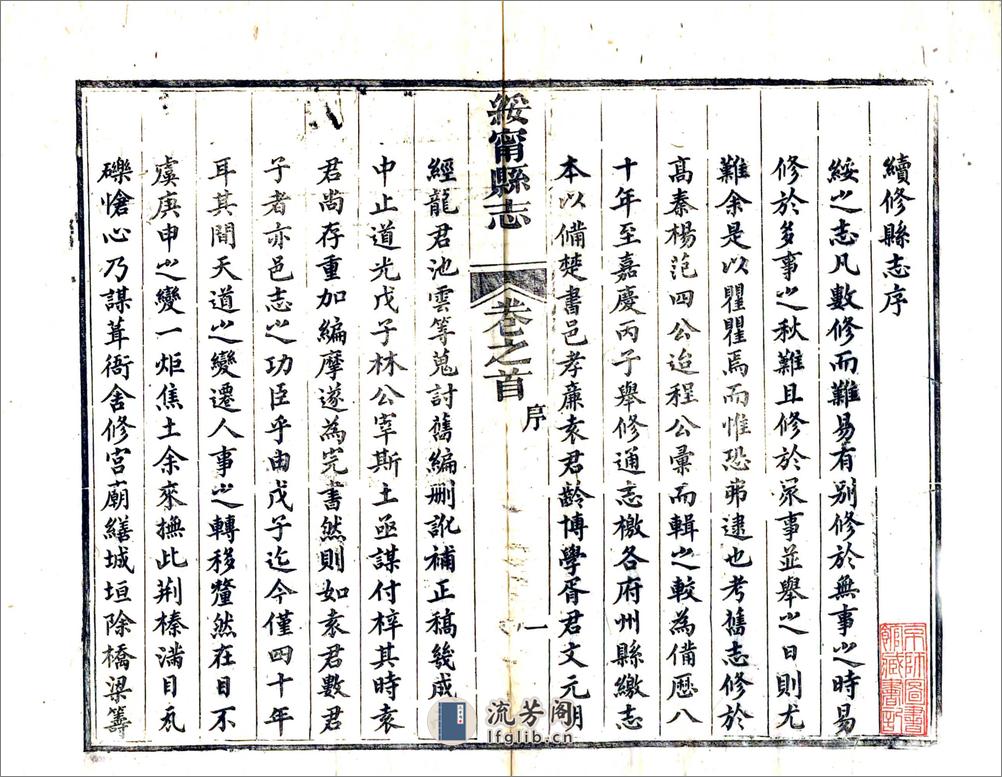 續修縣志序
綏之志凡數修而難易有別修於無事之時易
修於多事之秋難且修於衆事並舉之日則尤
難余是以瞿瞿焉而惟恐弗逮也考舊志修於
高秦楊范四公迨程公彙而輯之較為備歷八
十年至嘉慶丙子舉修通志檄各府州縣繳志
本以備楚書邑孝廉袁君齡博學胥君文元明
綏甯縣志
卷之首
序
一
經龍君池雲等蒐討舊編刪訛補正稿幾成
中止道光戊子林公宰斯土亟謀付梓其時袁
君尚存重加編摩遂為完書然則如袁君數君
子者亦邑志之功臣乎由戊子迄今僅四十年
耳其間天道之變遷人事之轉移釐然在目不
虞庚申之變一炬焦土余來撫此荆榛滿目瓦
礫愴心乃謀葺衙舍修宮廟繕城垣除橋梁籌
京師圖書
館藏書記
流芳阁
lfglib.cn